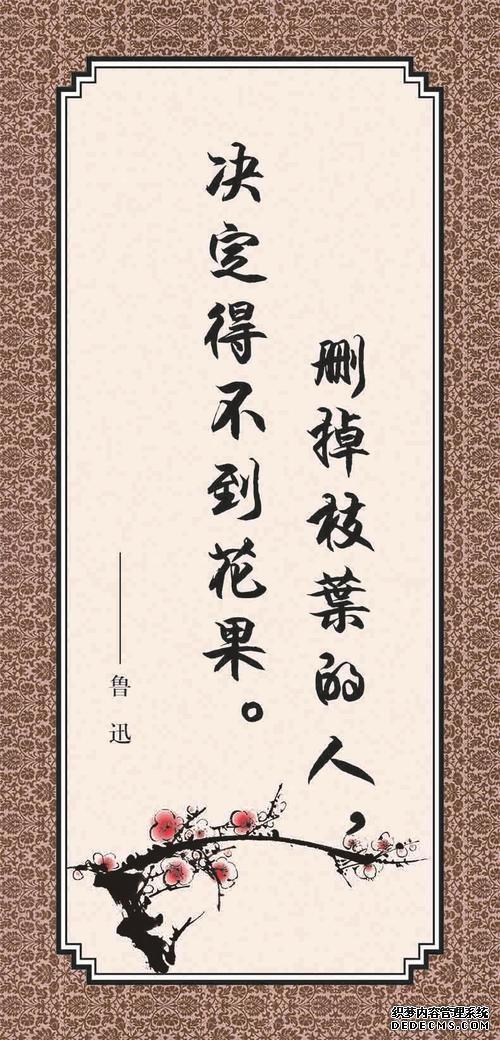 删掉枝葉的人，
决定得不到花果。
——鲁迅
织梦内容管理系统
DEDECMS.COM